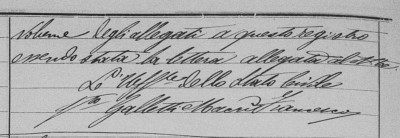 volume degli allegati a questo registro
essendo stata la lettera allegata al
L'Uff.le dello Stato Civile
Galletti Macrì Francesco